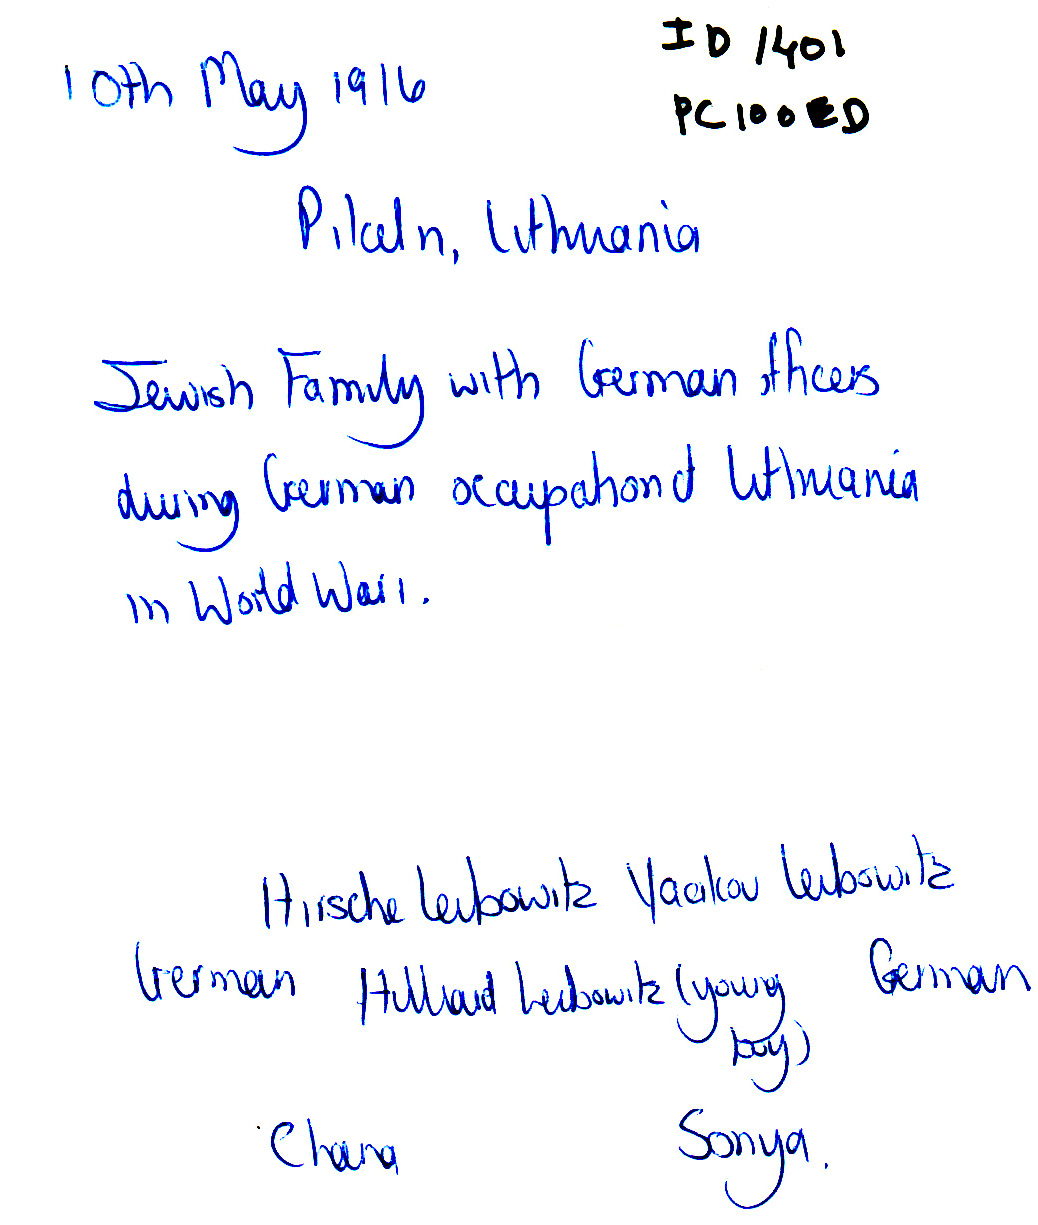 10th May 1916
ID 1401
PC100ED
Pikeln, Lithuania
Jewish Family with German officers
during German occupation of Lithuania
in World War 1.
Hirsche Leibowitz Yaakov Leibowitz
German Hilliard Leibowitz (young boy) German
Chana Sonya.